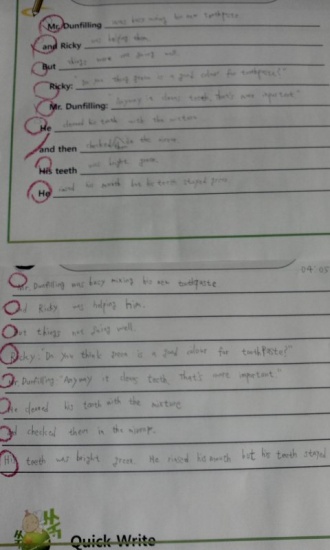 Mr. Dunfilling was busy mixing his new toothpaste
and Ricky was helping him
But things were not going well.
Ricky: "Do you think green is a good colour for toothpaste?"
Mr. Dunfilling: "Anyway it cleans teeth, that's more important."
He cleaned his teeth with the mixture
and then checked them in the mirror
His teeth was bright green.
He rinsed his mouth but his teeth stayed green
04:05
Mr. Dunfilling was busy mixing his new toothpaste
and Ricky was helping him.
But things was going well.
Ricky: "Do you think green is a good colour for toothpaste?"
Mr Dunfilling "Anyway it cleans teeth, That's more important."
He cleaned his teeth with the mixture
and checked them in the mirror.
His teeth was bright green. He rinsed his mouth but he teeth stayed
Quick Write